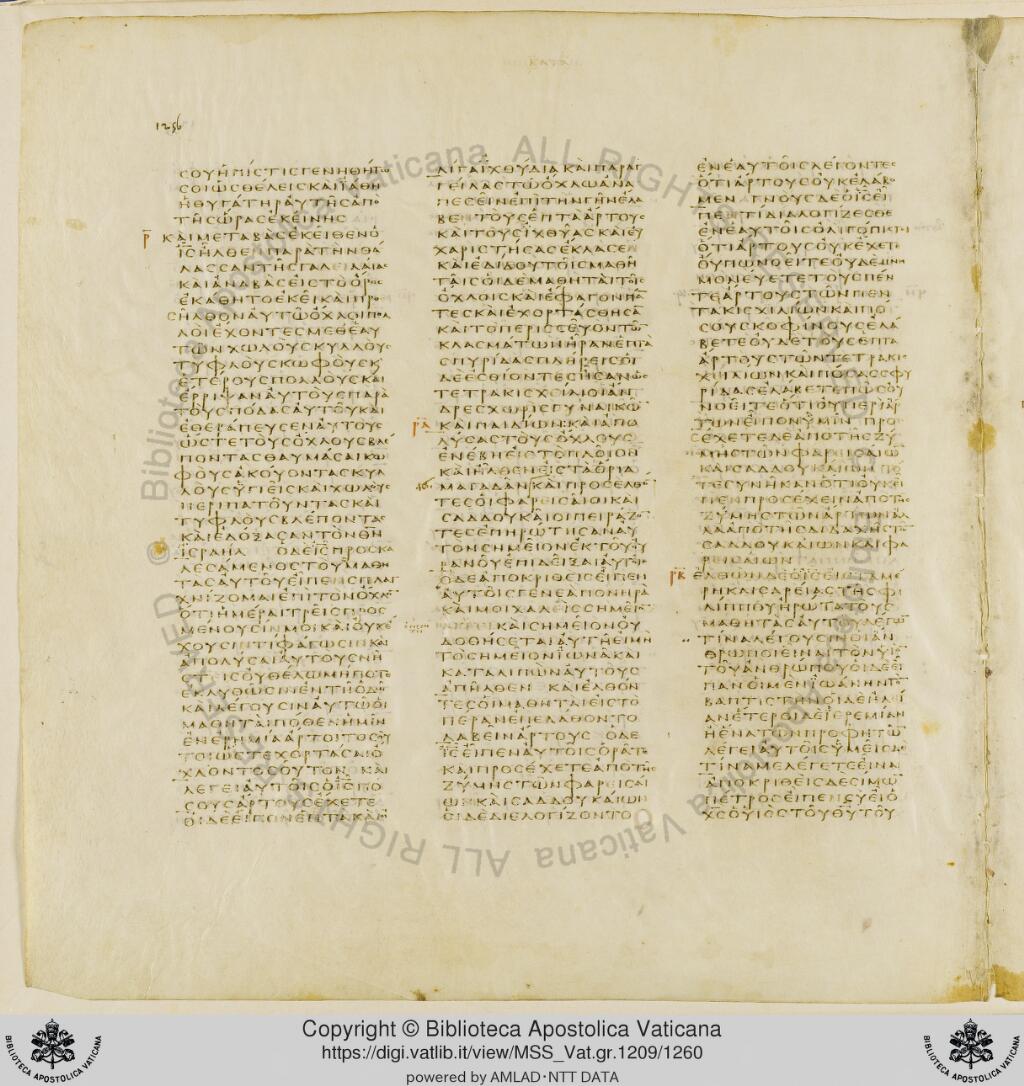 1256
ϹΟΥΗΠΙϹΤΙϹΓΕΝΗΘΗΤΩ
ϹΟΙΩϹΘΕΛΕΙϹΚΑΙΪΑΘΗ
ΗΘΥΓΑΤΗΡΑΥΤΗϹΑΠΟ
ΤΗϹΩΡΑϹΕΚΕΙΝΗϹ
Ρ̅ ΚΑΙΜΕΤΑΒΑϹΕΚΕΙΘΕΝΟ
Ι̅Ϲ̅ΗΛΘΕΝΠΑΡΑΤΗΝΘΑ
ΛΑϹϹΑΝΤΗϹΓΑΛΕΙΛΑΙΑϹ
ΚΑΙΑΝΑΒΑϹΕΙϹΤΟΟΡΟϹ
ΕΚΑΘΗΤΟΕΚΕΙΚΑΙΠΡΟ
ϹΗΛΘΟΝΑΥΤΩΟΧΛΟΙΠΟΛ
ΛΟΙΕΧΟΝΤΕϹΜΕΘΕΑΥ
ΤΩΝΧΩΛΟΥϹΚΥΛΛΟΥϹ
ΤΥΦΛΟΥϹΚΩΦΟΥϹΚ
ΕΤΕΡΟΥϹΠΟΛΛΟΥϹΚΑΙ
ΕΡΡΙΨΑΝΑΥΤΟΥϹΠΑΡΑ
ΤΟΥϹΠΟΔΑϹΑΥΤΟΥΚΑΙ
ΕΘΕΡΑΠΕΥϹΕΝΑΥΤΟΥϹ
ΩϹΤΕΤΟΥϹΟΧΛΟΥϹΒΛΕ
ΠΟΝΤΑϹΘΑΥΜΑϹΑΙΚΩ
ΦΟΥϹΑΚΟΥΟΝΤΑϹΚΥΛ
ΛΟΥϹΥΓΙΕΙϹΚΑΙΧΩΛΟΥϹ
ΠΕΡΙΠΑΤΟΥΝΤΑϹΚΑΙ
ΤΥΦΛΟΥϹΒΛΕΠΟΝΤΑϹ
ΚΑΙΕΔΟΞΑϹΑΝΤΟΝΘ̅Ν̅
ΙϹΡΑΗΛ ΟΔΕΙ̅Ϲ̅ΠΡΟϹΚΑ
ΛΕϹΑΜΕΝΟϹΤΟΥϹΜΑΘΗ
ΤΑϹΑΥΤΟΥΕΙΠΕΝϹΠΛΑΓ
ΧΝΙΖΟΜΑΙΕΠΙΤΟΝΟΧΛΟ̅
ΟΤΙΗΜΕΡΑΙΤΡΕΙϹΠΡΟϹ
ΜΕΝΟΥϹΙΝΜΟΙΚΑΙΟΥΚΕ
ΧΟΥϹΙΝΤΙΦΑΓΩϹΙΝΚΑΙ
ΑΠΟΛΥϹΑΙΑΥΤΟΥϹΝΗ
ϹΤΕΙϹΟΥΘΕΛΩΜΗΠΟΤΕ
ΕΚΛΥΘΩϹΙΝΕΝΤΗΟΔΩ
ΚΑΙΛΕΓΟΥϹΙΝΑΥΤΩΟΙ
ΜΑΘΗΤΑΙΠΟΘΕΝΗΜΙΝ
ΕΝΕΡΗΜΙΑΑΡΤΟΙΤΟϹΟΥ
ΤΟΙΩϹΤΕΧΟΡΤΑϹΑΙΟ
ΧΛΟΝΤΟϹΟΥΤΟΝ ΚΑΙ
ΛΕΓΕΙΑΥΤΟΙϹΟΙ̅Ϲ̅ΠΟ
ϹΟΥϹΑΡΤΟΥϹΕΧΕΤΕ
ΟΙΔΕΕΙΠΟΝΕΠΤΑΚΑΙΟ
ΛΙΓΑΪΧΘΥΔΙΑΚΑΙΠΑΡΑΓ
ΓΕΙΛΑϹΤΩΟΧΛΩΑΝΑ
ΠΕϹΕΙΝΕΠΙΤΗΝΓΗΝΕΛΑ
ΒΕΝΤΟΥϹΕΠΤΑΑΡΤΟΥϹ
ΚΑΙΤΟΥϹΪΧΘΥΑϹΚΑΙΕΥ
ΧΑΡΙϹΤΗϹΑϹΕΚΛΑϹΕΝ
ΚΑΙΕΔΙΔΟΥΤΟΙϹΜΑΘΗ
ΤΑΙϹΟΙΔΕΜΑΘΗΤΑΙΤΟΙϹ
ΟΧΛΟΙϹΚΑΙΕΦΑΓΟΝΠΑ̅
ΤΕϹΚΑΙΕΧΟΡΤΑϹΘΗϹΑ̅
ΚΑΙΤΟΠΕΡΙϹϹΕΥΟΝΤΩ̅
ΚΛΑϹΜΑΤΩΝΗΡΑΝΕΠΤΑ
ϹΠΥΡΙΔΑϹΠΛΗΡΕΙϹΟΙ
ΔΕΕϹΘΙΟΝΤΕϹΗϹΑΝΩϹ
ΤΕΤΡΑΚΙϹΧΕΙΛΙΟΙΑΝ
ΔΡΕϹΧΩΡΙϹΓΥΝΑΙΚΩ̅
Ρ̅Α̅ ΚΑΙΠΑΙΔΙΩΝΚΑΙΑΠΟ
ΛΥϹΑϹΤΟΥϹΟΧΛΟΥϹ
ΕΝΕΒΗΕΙϹΤΟΠΛΟΙΟΝ
ΚΑΙΗΛΘΕΝΕΙϹΤΑΟΡΙΑ
ΜΑΓΑΔΑΝΚΑΙΠΡΟϹΕΛΘΟ̅
ΤΕϹΟΙΦΑΡΕΙϹΑΙΟΙΚΑΙ
ϹΑΔΔΟΥΚΑΙΟΙΠΕΙΡΑΖΟ̅
ΤΕϹΕΠΗΡΩΤΗϹΑΝΑΥ
ΤΟΝϹΗΜΕΙΟΝΕΚΤΟΥΟΥ
ΡΑΝΟΥΕΠΙΔΕΙΞΑΙΑΥΤΟΙϹ
ΟΔΕΑΠΟΚΡΙΘΕΙϹΕΙΠΕΝ
ΑΥΤΟΙϹΓΕΝΕΑΠΟΝΗΡΑ
ΚΑΙΜΟΙΧΑΛΕΙϹϹΗΜΕΙΟ̅
ΚΑΙϹΗΜΕΙΟΝΟΥ
ΔΟΘΗϹΕΤΑΙΑΥΤΗΕΙΜΗ
ΤΟϹΗΜΕΙΟΝΪΩΝΑΚΑΙ
ΚΑΤΑΛΙΠΩΝΑΥΤΟΥϹ
ΑΠΗΛΘΕΝ ΚΑΙΕΛΘΟΝ
ΤΕϹΟΙΜΑΘΗΤΑΙΕΙϹΤΟ
ΠΕΡΑΝΕΠΕΛΑΘΟΝΤΟ
ΛΑΒΕΙΝΑΡΤΟΥϹ ΟΔΕ
Ι̅Ϲ̅ΕΙΠΕΝΑΥΤΟΙϹΟΡΑΤΕ
ΚΑΙΠΡΟϹΕΧΕΤΕΑΠΟΤΗϹ
ΖΥΜΗϹΤΩΝΦΑΡΕΙϹΑΙ
ΩΝΚΑΙϹΑΔΔΟΥΚΑΙΩΝ
ΟΙΔΕΔΙΕΛΟΓΙΖΟΝΤΟ
ΕΝΕΑΥΤΟΙϹΛΕΓΟΝΤΕϹ
ΟΤΙΑΡΤΟΥϹΟΥΚΕΛΑΒΟ
ΜΕΝ ΓΝΟΥϹΔΕΟΙ̅Ϲ̅ΕΙ
ΠΕΝΤΙΔΙΑΛΟΓΙΖΕϹΘΕ
ΕΝΕΑΥΤΟΙϹΟΛΙΓΟΠΙϹΤΟΙ
ΟΤΙΑΡΤΟΥϹΟΥΚΕΧΕΤΕ
ΟΥΠΩΝΟΕΙΤΕΟΥΔΕΜΝΗ
ΜΟΝΕΥΕΤΕΤΟΥϹΠΕΝ
ΤΕΑΡΤΟΥϹΤΩΝΠΕΝ
ΤΑΚΙϹΧΙΛΙΩΝΚΑΙΠΟ
ϹΟΥϹΚΟΦΙΝΟΥϹΕΛΑ
ΒΕΤΕΟΥΔΕΤΟΥϹΕΠΤΑ
ΑΡΤΟΥϹΤΩΝΤΕΤΡΑΚΙϹ
ΧΕΙΛΙΩΝΚΑΙΠΟϹΑϹϹΦΥ
ΡΙΔΑϹΕΛΑΒΕΤΕΠΩϹΟΥ
ΝΟΕΙΤΕΟΤΙΟΥΠΕΡΙΑΡ
ΤΩΝΕΙΠΟΝΥΜΙΝ ΠΡΟ
ϹΕΧΕΤΕΔΕΑΠΟΤΗϹΖΥ
ΜΗϹΤΩΝΦΑΡΕΙϹΑΙΩ̅
ΚΑΙϹΑΔΔΟΥΚΑΙΩΝ ΤΟ
ΤΕϹΥΝΗΚΑΝΟΤΙΟΥΚΕΙ
ΠΕΝΠΡΟϹΕΧΕΙΝΑΠΟΤΗϹ
ΖΥΜΗϹΤΩΝΑΡΤΩΝΑΛ
ΛΑΑΠΟΤΗϹΔΙΔΑΧΗϹΤΩ̅
ϹΑΔΔΟΥΚΑΙΩΝΚΑΙΦΑ
ΡΕΙϹΑΙΩΝ
Ρ̅Β̅ ΕΛΘΩΝΔΕΟΙ̅Ϲ̅ΕΙϹΤΑΜΕ
ΡΗΚΑΙϹΑΡΕΙΑϹΤΗϹΦΙ
ΛΙΠΠΟΥΗΡΩΤΑΤΟΥϹ
ΜΑΘΗΤΑϹΑΥΤΟΥΛΕΓΩ̅
ΤΙΝΑΛΕΓΟΥϹΙΝΟΙΑΝ
ΘΡΩΠΟΙΕΙΝΑΙΤΟΝΥΙΟ̅
ΤΟΥΑΝΘΡΩΠΟΥΟΙΔΕΕΙ
ΠΑΝΟΙΜΕΝΪΩΑΝΗΝΤΟ̅
ΒΑΠΤΙϹΤΗΝΟΙΔΕΗΛΕΙ
ΑΝΕΤΕΡΟΙΔΕΪΕΡΕΜΙΑΝ
ΗΕΝΑΤΩΝΠΡΟΦΗΤΩ̅
ΛΕΓΕΙΑΥΤΟΙϹΥΜΕΙϹΔΕ
ΤΙΝΑΜΕΛΕΓΕΤΕΕΙΝΑΙ
ΑΠΟΚΡΙΘΕΙϹΔΕϹΙΜΩ̅
ΠΕΤΡΟϹΕΙΠΕΝϹΥΕΙΟ
Χ̅Ϲ̅ΟΥΙΟϹΤΟΥΘ̅Υ̅ΤΟΥ
Copyright © Biblioteca Apostolica Vaticana
https://digi.vatlib.it/view/MSS_Vat.gr.1209/1260
powered by AMLAD·NTT DATA